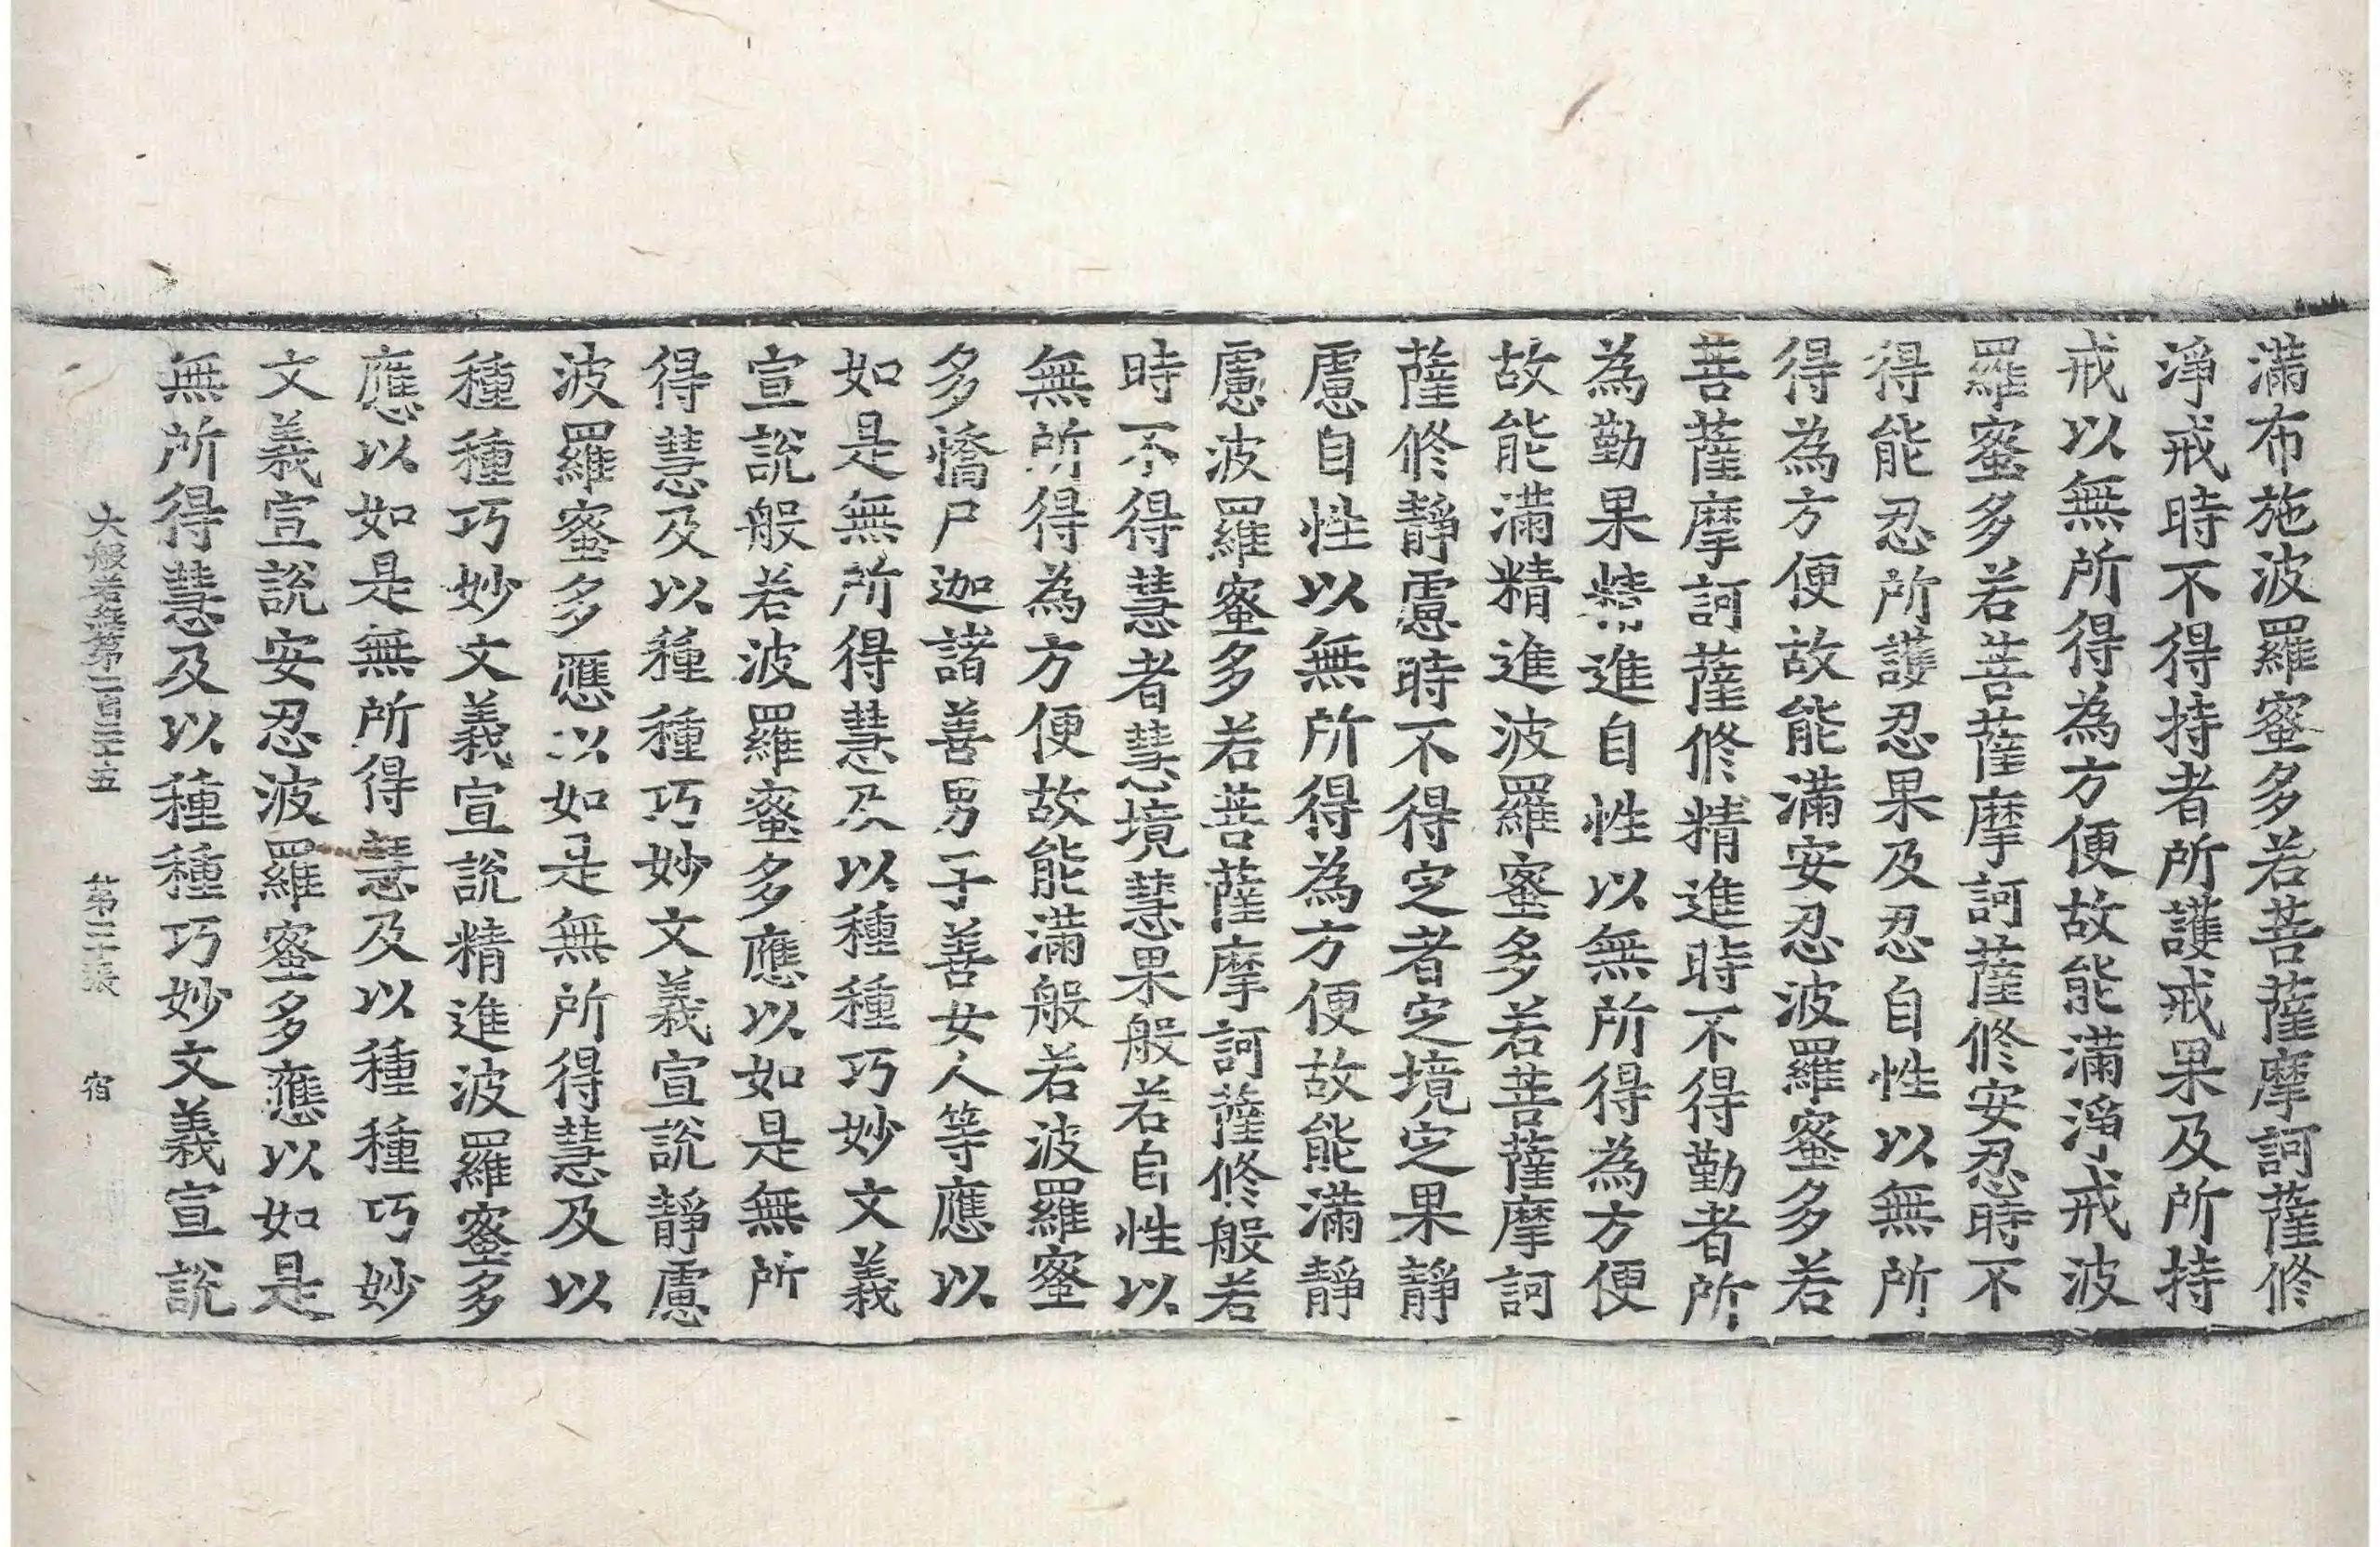 滿布施波羅蜜多若菩薩摩訶薩修
淨戒時不得持者所護戒果及所持
戒以無所得為方便故能滿淨戒波
羅蜜多若菩薩摩訶薩修安忍時不
得能忍所護忍果及忍自性以無所
得為方便故能滿安忍波羅蜜多若
菩薩摩訶薩修精進時不得勤者所
為勤果精進自性以無所得為方便
故能滿精進波羅蜜多若菩薩摩訶
薩修靜慮時不得定者定境定果靜
慮自性以無所得為方便故能滿靜
慮波羅蜜多若菩薩摩訶薩修般若
時不得慧者慧境慧果般若自性以
無所得為方便故能滿般若波羅蜜
多憍尸迦諸善男子善女人等應以
如是無所得慧及以種種巧妙文義
宣說般若波羅蜜多應以如是無所
得慧及以種種巧妙文義宣說靜慮
波羅蜜多應以如是無所得慧及以
種種巧妙文義宣說精進波羅蜜多
應以如是無所得慧及以種種巧妙
文義宣說安忍波羅蜜多應以如是
無所得慧及以種種巧妙文義宣說
大般若經第一百三十五 第二十張 宿